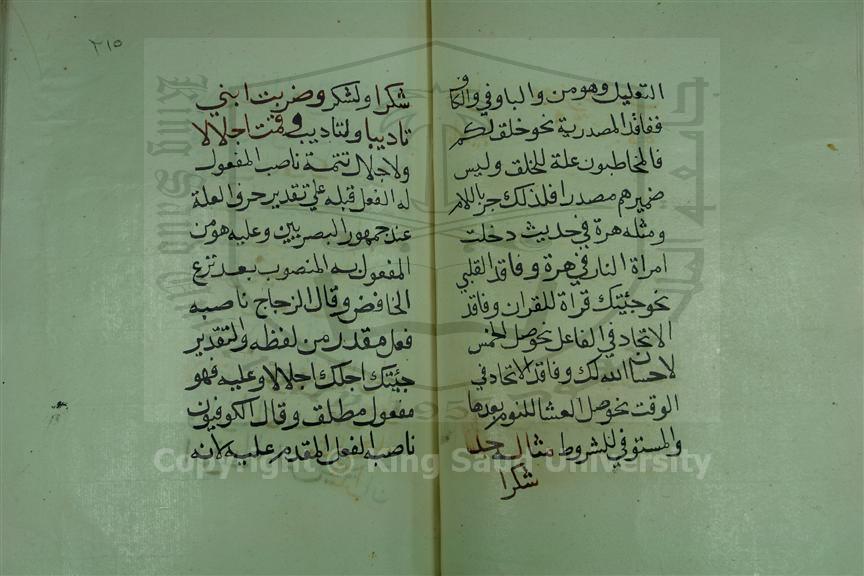 التعليل وهو من والباو في والكاف
ففاقد المصدرية نحو خلق لكم
فالمخاطبون علة للخلق وليس
ضميرهم مصدرا فلذلك جر باللام
ومثله هرة في حديث دخلت
امراة النار في هرة وفاقد القلبي
نحو جئيتك قراة للقران وفاقد
الاتحاد في الفاعل نحو صل الخمس
لاحسان الله لك وفاقد الاتحاد في
الوقت نحو صل العشا للنوم بعدها
والمستوفي للشروط مثاله جد
شكرا
٢١٥
شكرا ولشكر وضربت ابني
تاديبا ولتاديب وقمت اجلالا
ولاجلال تتمة ناصب المفعول
له الفعل قبله على تقدير حرف العلة
عند جمهور البصريين وعليه هو من
المفعول به المنصوب بعد نزع
الخافض وقال الزجاج ناصبه
فعل مقدر من لفظه والتقدير
جئيتك اجلك اجلالا وعليه فهو
مفعول مطلق وقال الكوفيون
ناصبه الفعل المقدم عليه لانه
Copyright © King Saud University